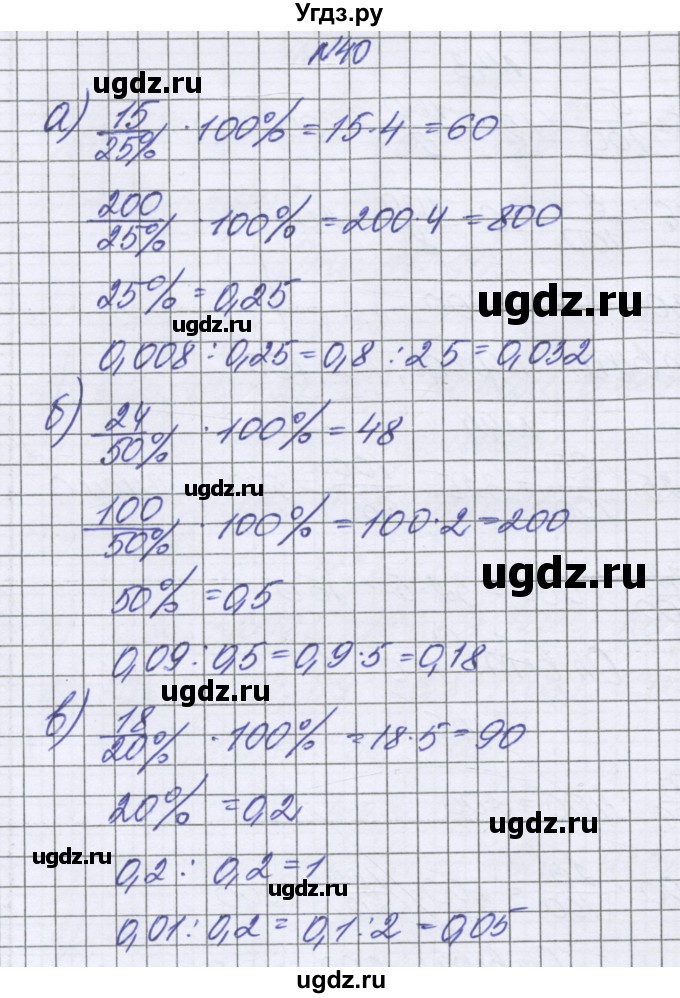 Угдз.ру
N40
ugdz.ru
а) 15/25% · 100% = 15·4 = 60
200/25% · 100% = 200·4 = 800
25% = 0,25
ugdz.ru
ugdz.ru
0,008 : 0,25 = 0,8 : 25 = 0,032
б) 24/50% · 100% = 48
ugdz.ru
100/50% · 100% = 100·2 = 200
ugdz.ru
50% = 0,5
0,09 : 0,5 = 0,9·5 = 0,18
ugdz.ru
в) 18/20% · 100% = 18·5 = 90
20% = 0,2
ugdz.ru
ugdz.ru
0,2 : 0,2 = 1
ugdz.ru
0,01 : 0,2 = 0,1 : 2 = 0,05
ugdz.ru